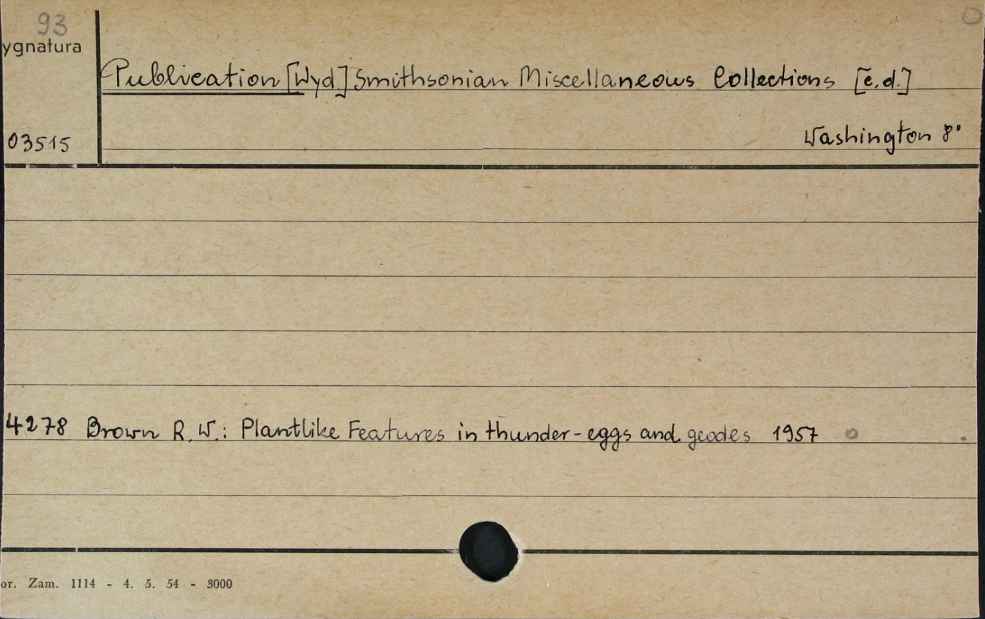 93
ygnatura
Publication [Wyd] Smithsonian Miscellaneous Collections [c.d.]
03515
Washington 8°
4278 Brown R.W.: Plantlike Features in thunder-eggs and geodes 1957
or. Zam. 1114 - 4. 5. 54 - 3000